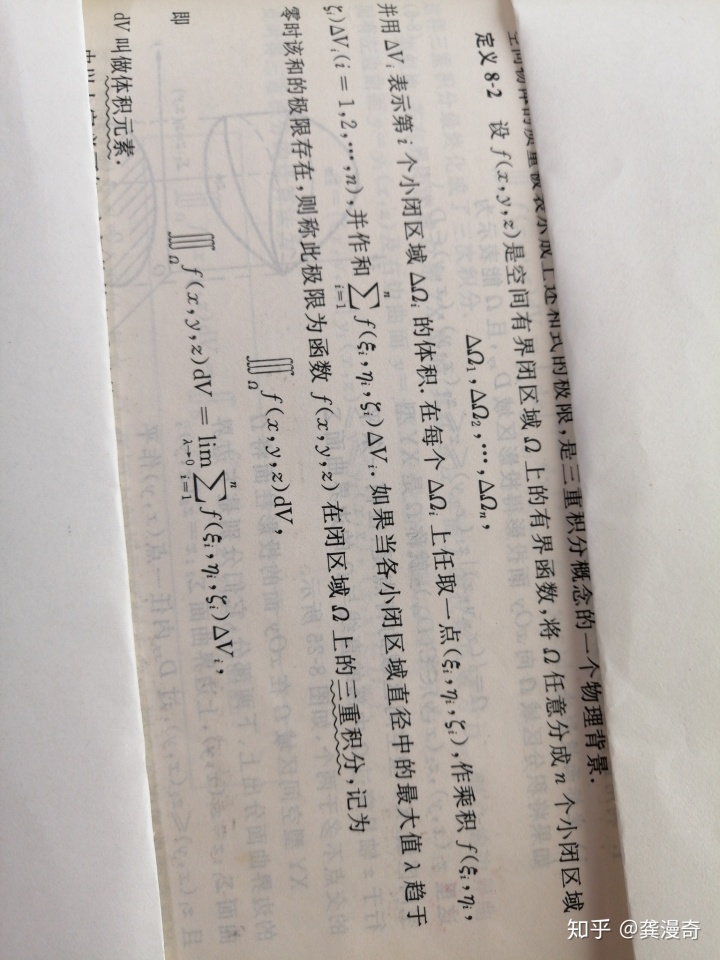 空间物体的质量被表示成上述和式的极限,是三重积分概念的一个物理背景.
定义 8-2 设 f(x,y,z)是空间有界闭区域 Ω 上的有界函数,将 Ω 任意分成 n 个小闭区域
ΔΩ₁,ΔΩ₂,…,ΔΩₙ,
并用 ΔVᵢ 表示第 i 个小闭区域 ΔΩᵢ 的体积. 在每个 ΔΩᵢ 上任取一点(ξᵢ,ηᵢ,ζᵢ),作乘积 f(ξᵢ,ηᵢ,
ζᵢ)ΔVᵢ(i = 1,2,…,n),并作和 ∑ᵢ₌₁ⁿ f(ξᵢ,ηᵢ,ζᵢ)ΔVᵢ. 如果当各小闭区域直径中的最大值 λ 趋于
零时该和的极限存在,则称此极限为函数 f(x,y,z) 在闭区域 Ω 上的三重积分,记为
∭_Ω f(x,y,z)dV,
即
∭_Ω f(x,y,z)dV = lim_{λ→0} ∑ᵢ₌₁ⁿ f(ξᵢ,ηᵢ,ζᵢ)ΔVᵢ,
dV 叫做体积元素.
知乎 @龚漫奇